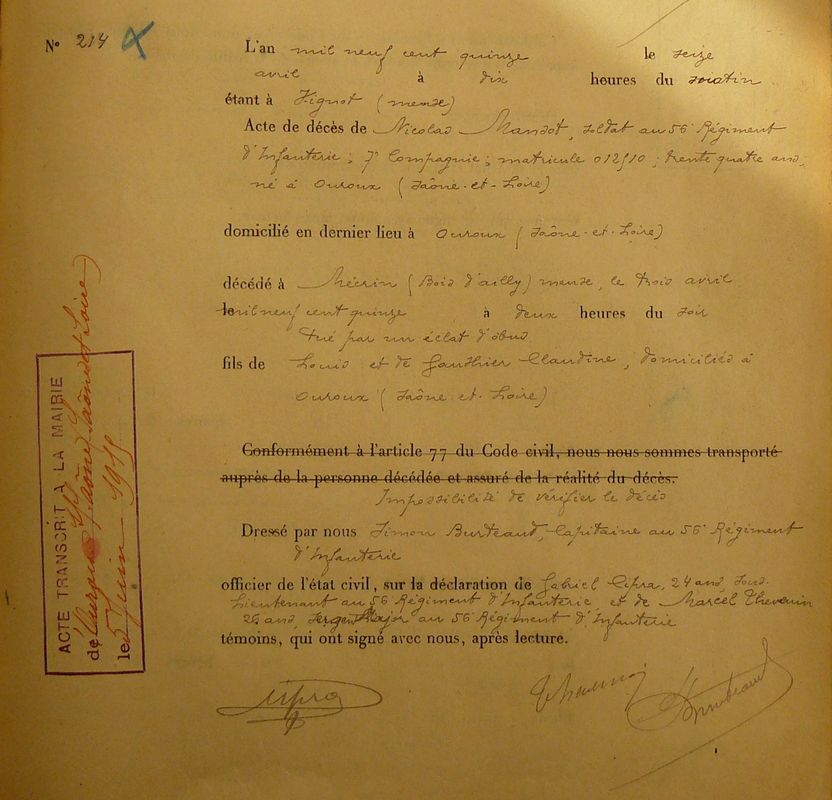 N° 214
L'an mil neuf cent quinze le seize
avril à dix heures du matin
étant à Vignot (meuse)
Acte de décès de Nicolas Mandot, soldat au 56e Régiment
d'Infanterie; 7e Compagnie; matricule 012910; trente quatre ans,
né à Ouroux (Saône-et-Loire)
domicilié en dernier lieu à Ouroux (Saône-et-Loire)
décédé à Mécrin (Bois d'ailly) meuse, le trois avril
le mil neuf cent quinze à deux heures du soir
tué par un éclat d'obus
fils de Louis et de Gauthier Claudine, domiciliés à
Ouroux (Saône-et-Loire)
Conformément à l'article 77 du Code civil, nous nous sommes transporté
auprès de la personne décédée et assuré de la réalité du décès.
Impossibilité de vérifier le décès
Dressé par nous Simon Burteaud, Capitaine au 56e Régiment
d'Infanterie
officier de l'état civil, sur la déclaration de Gabriel Cipra, 24 ans, sous-
Lieutenant au 56 Régiment d'Infanterie et de Marcel Thevenin
26 ans, sergent Major au 56 Régiment d'Infanterie
témoins, qui ont signé avec nous, après lecture.
Cipra
ACTE TRANSCRIT A LA MAIRIE
de Ouroux (Saône et Loire)
le 5 Juin 1915